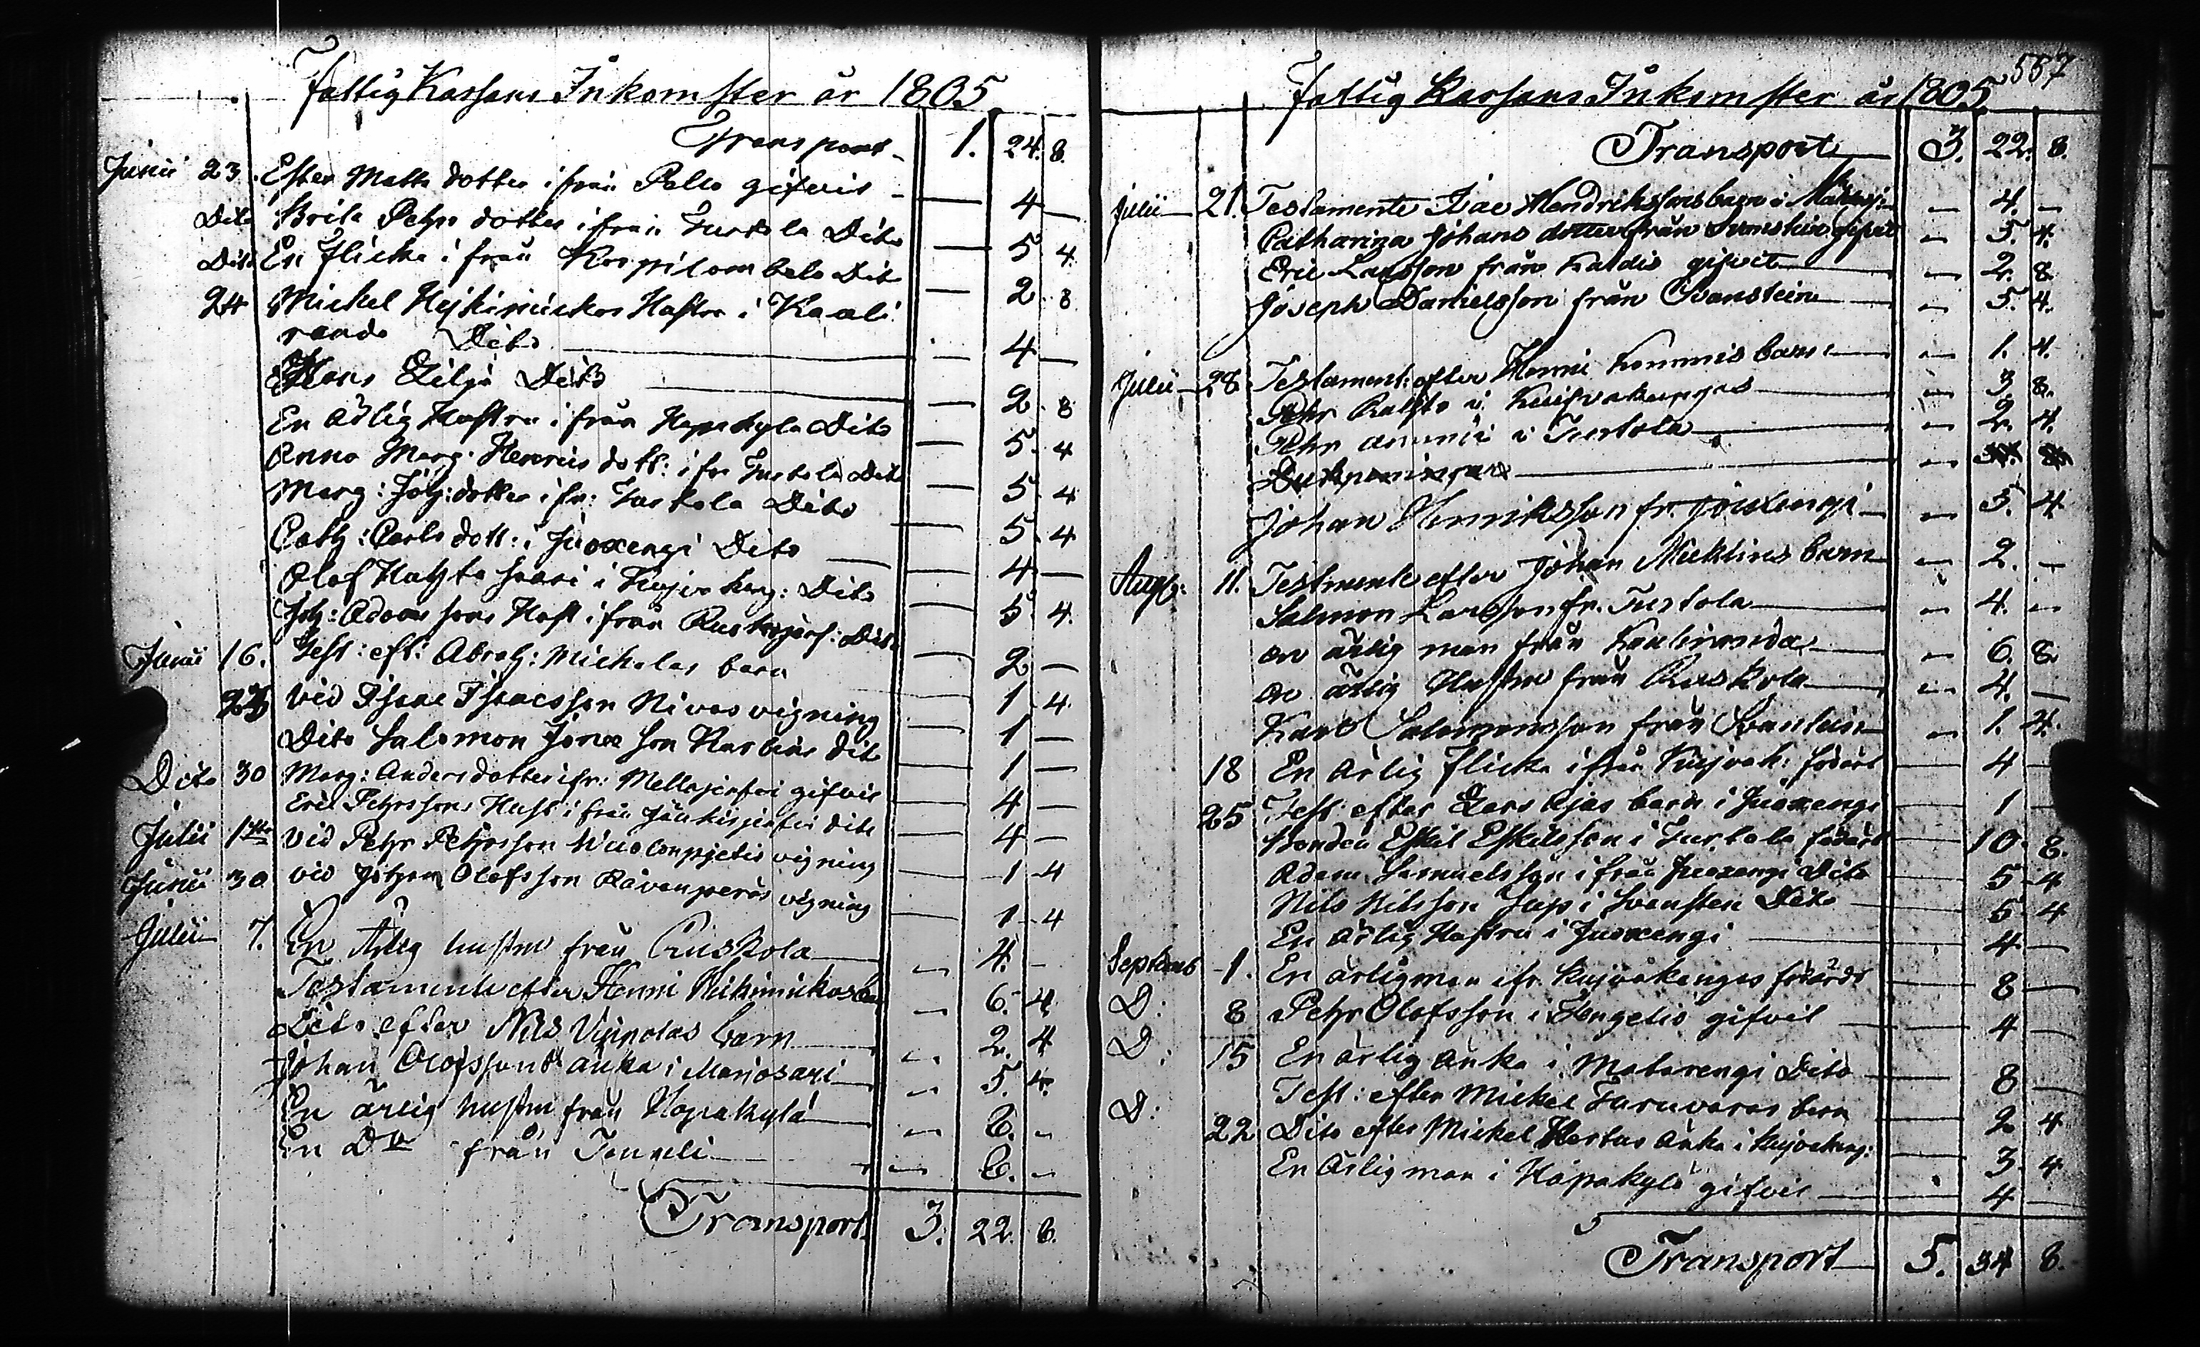 Fattig Kassans Inkomster år 1805
Transport 1. 24. 8.
Junii 23. Ester Matts dotter ifrån Pello gifvit — 4 —
Dito Brita Pehrs dotter ifrån Turtola Dito — 5 4
Dito En flicka ifrån Korpilombolo Dit — 2 8
24 Mickel Hejkimickos Hustru i Kauli
randa Dito — 4 —
Hans Lilja Dito — 2 8
En ärlig Hustru ifrån Hapakylä Dito — 5 4
Anna Marg: Henrics dott: ifr Turtola Dito — 5 4
Marg: Joh: dotter ifr: Turtola Dito — 5 4
Cath: Carls dott: i Juoxengi Dito — 4 —
Olof i Kujvakang: Dito — 5 4.
Joh: Adams sons Hust ifrån Ruskojerf: Dito — 2 —
Junii 16. Test: eft: Abrah: Mickelas barn — 1 4
23 Vid Isaac Isaacsson Nivas vigning — 1 —
Dito Salomon Jonae son dit — 1 —
Dito 30 Marg: Anders dotter ifr: Mellajerfvi gifvit — 4 —
Eric Pehrssons Hust: ifrån Jänkisjerfvi dito — 4 —
Julii 1 Vid Pehr Pehrsson vigning — 1 4
Junii 30 vid Johan Olofsson vigning — 1 4
Julii 7. En Ärlig hustru från Ruskola — 4. —
Testamente efter Henric — 6. 4
Dito efter Nils barn — 2. 4
Johan Olofssons änka i Marjosari — 5. 4.
En ärlig hustru från Hapakylä — 6. —
En Dto från — 6. —
Transport 3. 22. 8.
557
Fattig Kassans Inkomster år 1805
Transport 3. 22. 8.
Julii 21. Testamente Isac Hendrikssons barn i — 4. —
Catharina Johans dotter från Svanstein gifvit — 5. 4.
Eric Larsson från Kardis gifvit — 2. 8.
Joseph Danielsson från Svanstein — 5. 4.
Julii 28 Testament: efter Henric Kommis barn — 1. 4.
Pehr i Kuifvakangas — 3 8.
Pehr i Turtola — 2. 4.
Johan Henriksson fr. Joixengi — 5. 4
Aug: 11. Testmente efter Johan barn — 2. —
Salmon Larsson fr. Turtola — 4. —
en ärlig man från Kaulinranda — 6. 8.
en ärlig Hustru från Ruskola — 4. —
Karl Salomonsson från Svanstein — 1. 4.
18 En ärlig flicka ifrån Kujvak: födärt — 4 —
25 Test: efter Lars barn i Juoxengi — 1 —
Bonden Eskil Eskilsson i Turtola förärt — 10. 8.
Adam Samuelsson ifrån Juoxengi Dito — 5 4
Nils Nilsson Jup i Svansten Dito — 5 4
En ärlig Hustru i Juoxengi — 4 —
Septemb 1. En ärlig man ifr. Kujvakangas förärdt — 8 —
D: 8 Pehr Olofsson i Tengeliö gifvit — 4 —
D: 15 En ärlig änka i Matarengi Dito — 8 —
Test: efter Mickel barn — 2 4
D: 22 Dito efter Mickel änka i Kujvakang: — 3 4
En ärlig man i Hapakylä gifvit — 4 —
Transport 5. 34 8.